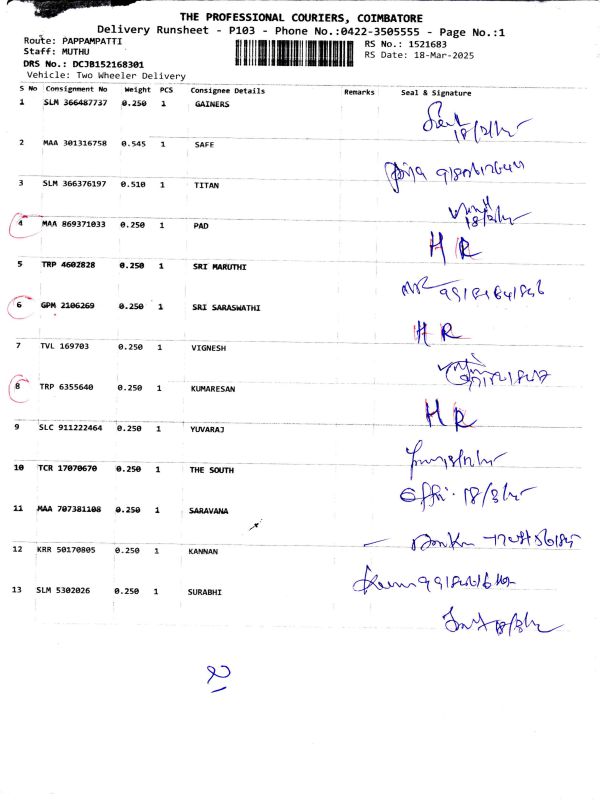 THE PROFESSIONAL COURIERS, COIMBATORE
Delivery Runsheet - P103 - Phone No.:0422-3505555 - Page No.:1
Route: PAPPAMPATTI
Staff: MUTHU
DRS No.: DCJB152168301
Vehicle: Two Wheeler Delivery
RS No.: 1521683
RS Date: 18-Mar-2025
S No Consignment No Weight PCS Consignee Details Remarks Seal & Signature
1 SLM 366487737 0.250 1 GAINERS
2 MAA 301316758 0.545 1 SAFE
3 SLM 366376197 0.510 1 TITAN
4 MAA 869371033 0.250 1 PAD H R
5 TRP 4602828 0.250 1 SRI MARUTHI
6 GPM 2106269 0.250 1 SRI SARASWATHI H R
7 TVL 169703 0.250 1 VIGNESH
8 TRP 6355640 0.250 1 KUMARESAN H R
9 SLC 911222464 0.250 1 YUVARAJ
10 TCR 17070670 0.250 1 THE SOUTH
11 MAA 707381108 0.250 1 SARAVANA
12 KRR 50170805 0.250 1 KANNAN
13 SLM 5302026 0.250 1 SURABHI